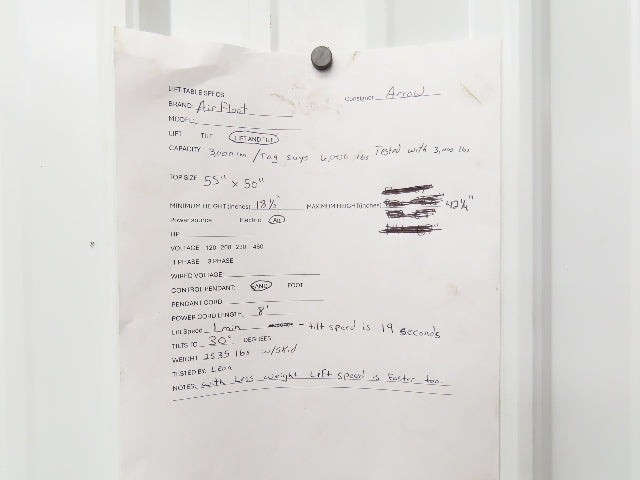 LIFT TABLE SPECS
Consigner Arrow
BRAND: Airfloat
MODEL:
LIFT TILT LIFT AND TILT
CAPACITY 3,000 / Tag says 6,000 lbs Tested with 3,000 lbs
TOP SIZE 55" x 50"
MINIMUM HEIGHT (inches) 18½" MAXIMUM HEIGHT (inches) 42¼"
Power source Electric Air
HP
VOLTAGE 120 208 230 460
1 PHASE 3 PHASE
WIRED VOLTAGE
CONTROL PENDANT: HAND FOOT
PENDANT CORD
POWER CORD LENGTH 8'
Lift Speed 1 min - tilt speed is 19 seconds
TILTS TO 30° DEGREES
WEIGHT 2535 lbs w/skid
TESTED BY: Leon
NOTES: with Less weight Lift speed is faster too.